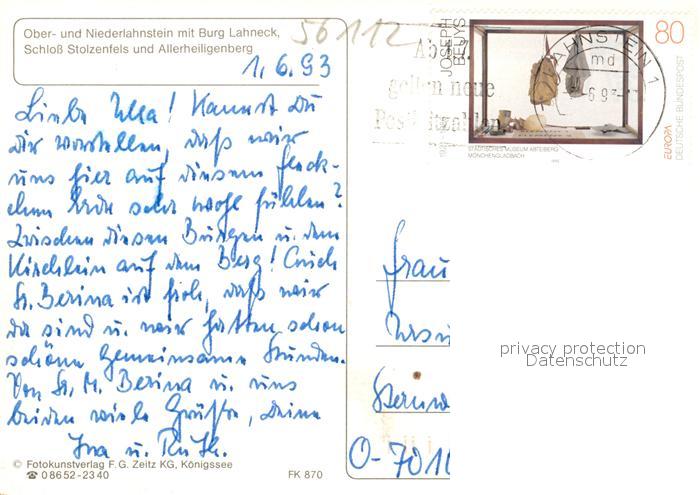 Ober- und Niederlahnstein mit Burg Lahneck,
Schloß Stolzenfels und Allerheiligenberg
561112
1.6.93
Liebe Ulla! Kannst Du
Dir vorstellen, daß wir
uns hier auf diesem Fleck-
chen Erde sehr wohl fühlen?
Zwischen diesen Burgen u. dem
Kirchlein auf dem Berg! Auch
Sr. Berina ist froh, daß wir
da sind u. wir hatten schon
schöne gemeinsame Stunden.
Von Sr. M. Berina u. uns
beiden viele Grüße, Deine
Ina u. Ruth.
© Fotokunstverlag F. G. Zeitz KG, Königssee
☎ 0 86 52 - 23 40
FK 870
JOSEPH
BEUYS
80
STÄDTISCHES MUSEUM ABTEIBERG
MÖNCHENGLADBACH
EUROPA
DEUTSCHE BUNDESPOST
Ab 1.7.
gelten neue
Postleitzahlen
LAHNSTEIN 1
md
Frau
privacy protection
Datenschutz
O-701